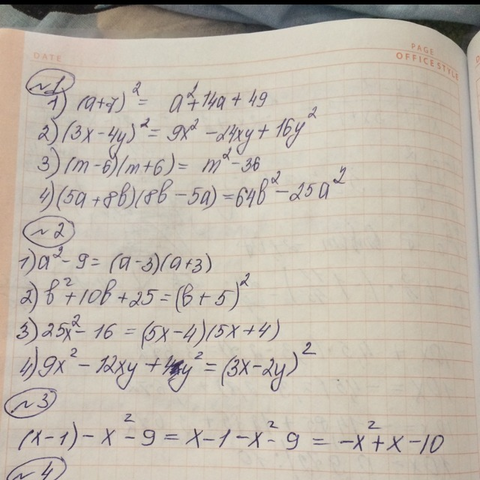 DATE
PAGE
OFFICE STYLE
№1
1) (a+7)² = a²+14a+49
2) (3x-4y)² = 9x² -24xy+16y²
3) (m-6)(m+6) = m²-36
4) (5a+8b)(8b-5a)=64b²-25a²
№2
1) a²-9=(a-3)(a+3)
2) b²+10b+25=(b+5)²
3) 25x²-16=(5x-4)(5x+4)
4) 9x²-12xy+4y²=(3x-2y)²
№3
(x-1)-x²-9=x-1-x²-9=-x²+x-10
№4